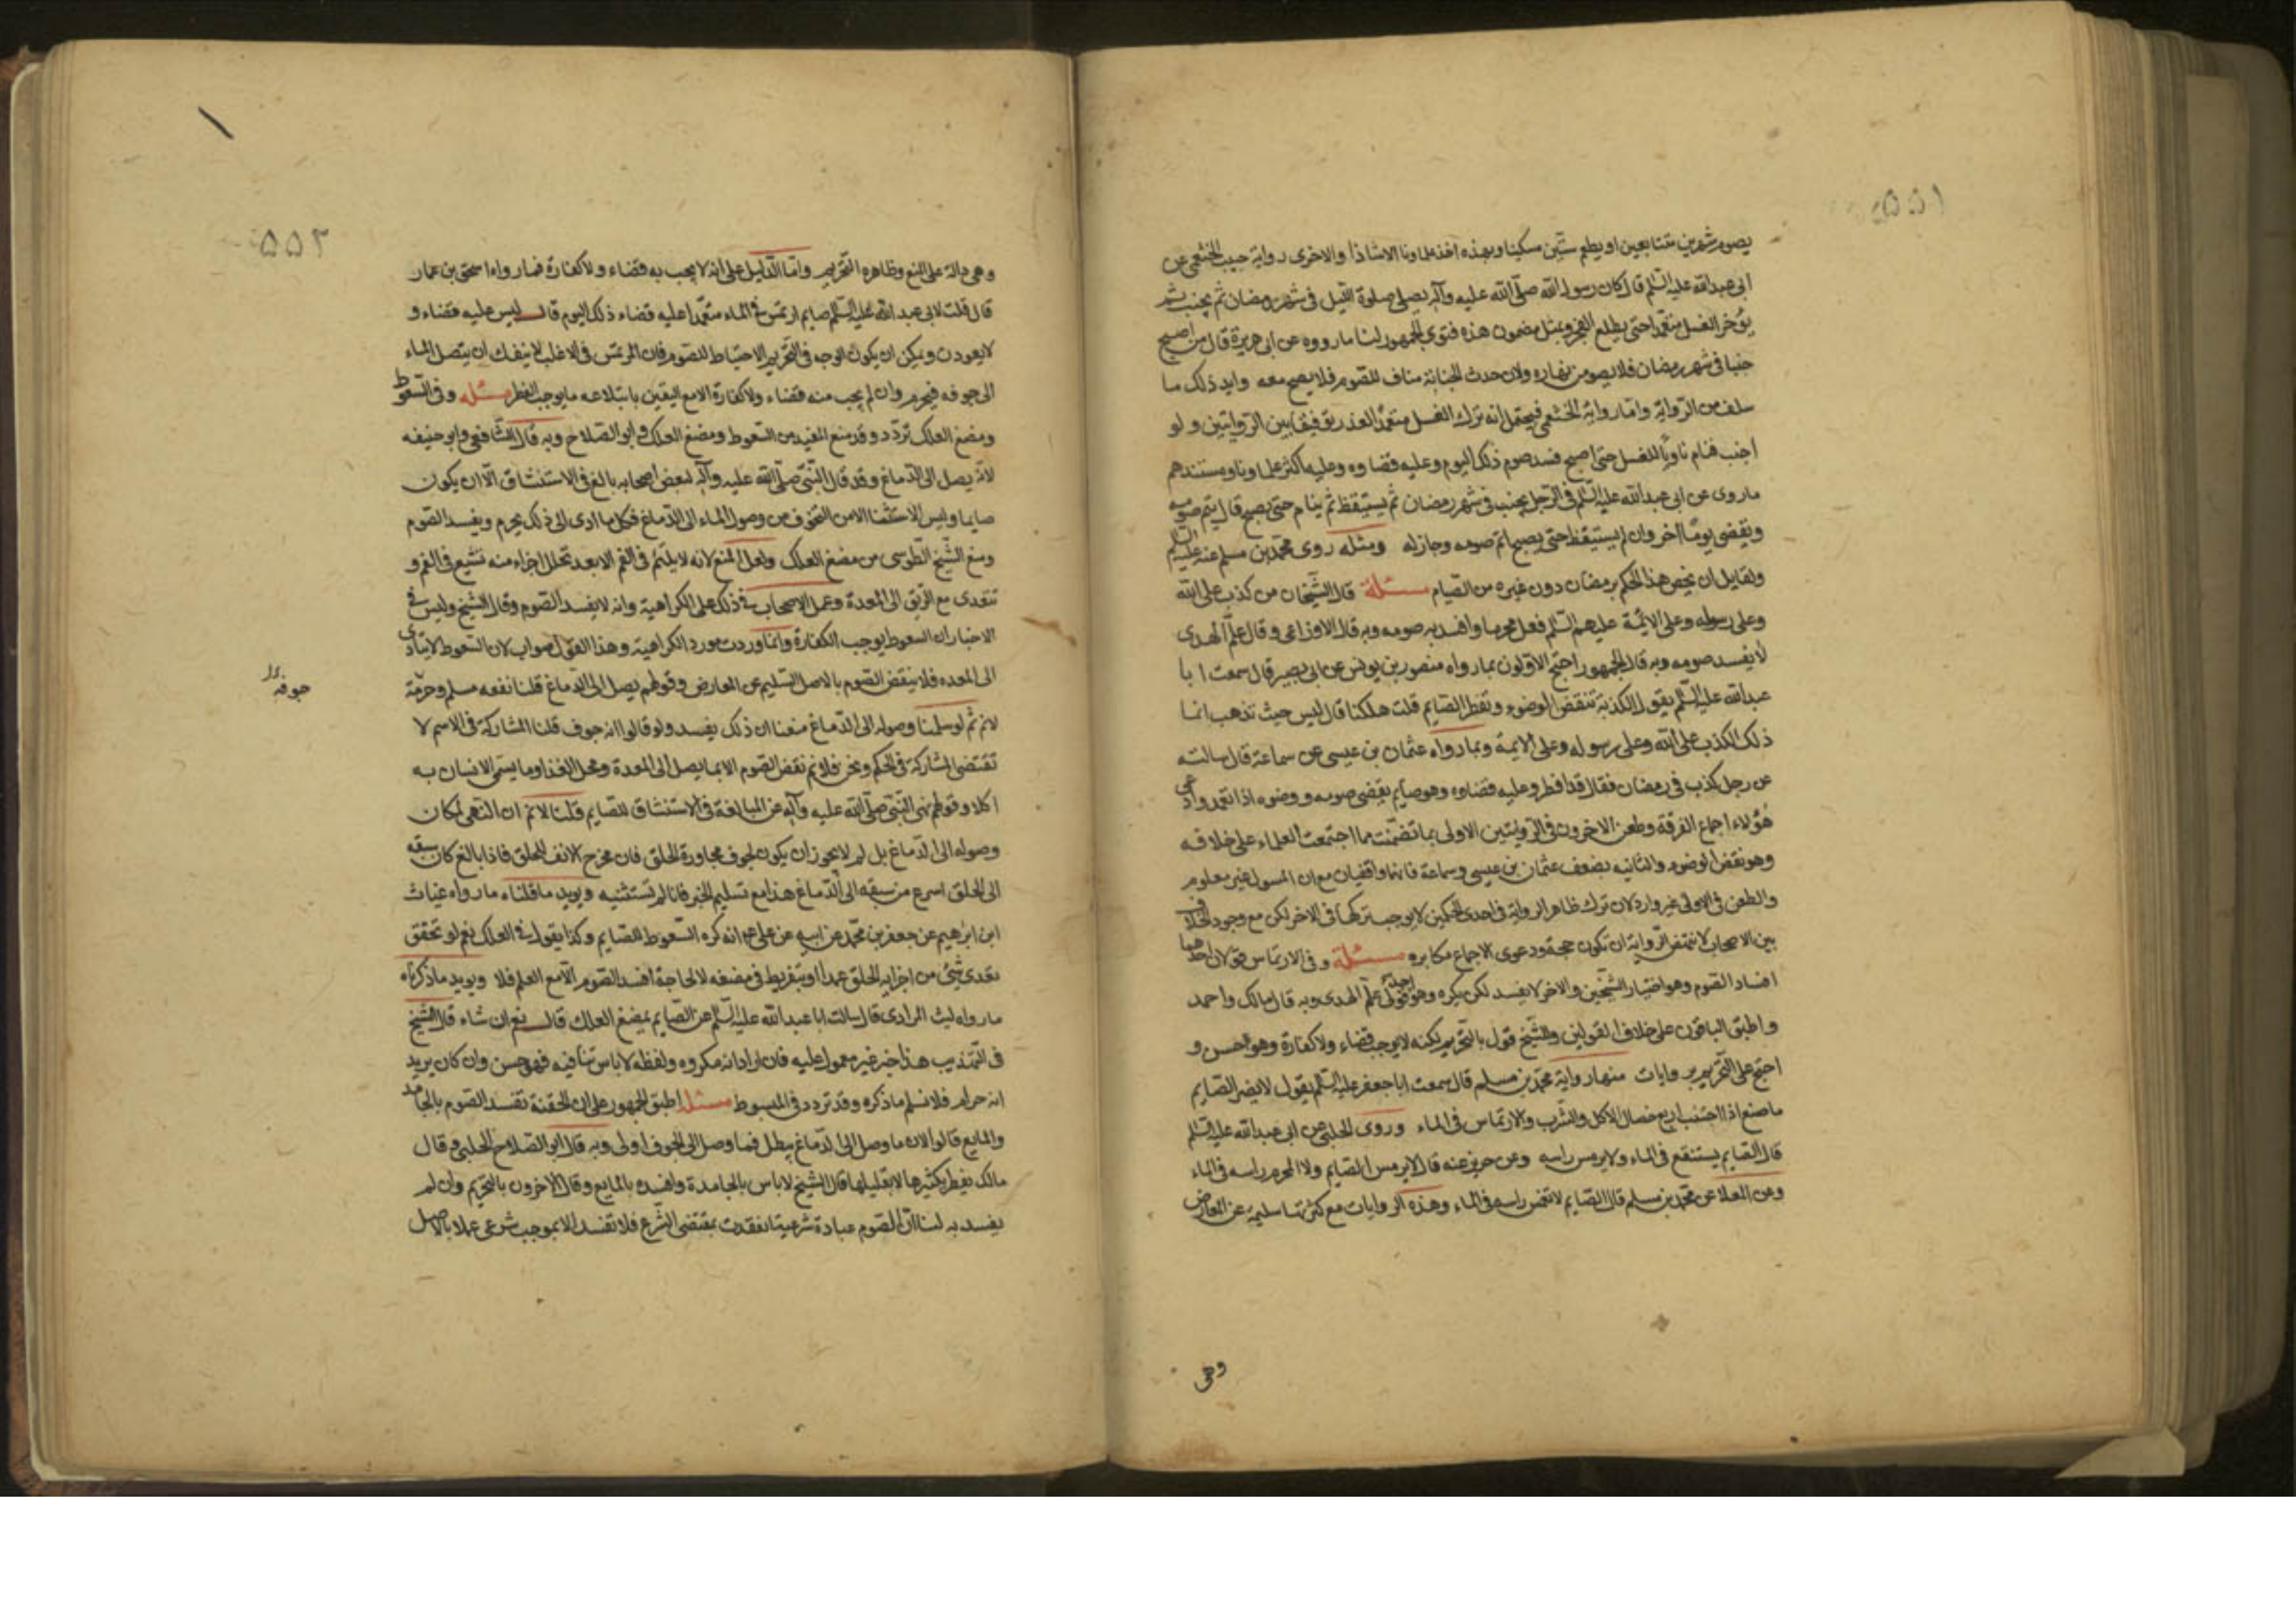 ۵۵۱
يصوم شهرين متتابعين او يطعم ستين مسكينا وبهذه اخذ علماونا الا شاذا والاخرى رواية حبيب الخثعمى عن
ابى عبدالله عليه السلم قال كان رسول الله صلى الله عليه وآله يصلى صلوة الليل فى شهر رمضان ثم يجنب ثم
يؤخر الغسل متعمدا حتى يطلع الفجر وبمثل مضمون هذه فتوى الجمهور لنا ما رووه عن ابى هريرة قال من اصبح
جنبا فى شهر رمضان فلا يصومن نهاره ولان حدث الجنابة مناف للصوم فلا يصح معه وايد ذلك ما
سلف من الرواية واما رواية الخثعمى فيحتمل انه ترك الغسل متعمدا لعذر توفيقا بين الروايتين ولو
اجنب فنام ناويا للغسل حتى اصبح فسد صوم ذلك اليوم وعليه قضاوه وعليه اكثر علماونا ومستندهم
ماروى عن ابى عبدالله عليه السلم فى الرجل يجنب فى شهر رمضان ثم يستيقظ ثم ينام حتى يصبح قال يتم صومه
ويقضى يوما اخر وان لم يستيقظ حتى يصبح اتم صومه وجاز له ومثله روى محمد بن مسلم عنه عليه السلم
ولقايل ان يخص هذا الحكم برمضان دون غيره من الصيام مسئلة قال الشيخان من كذب على الله
وعلى رسوله وعلى الائمة عليهم السلم فعل محرما وافسد به صومه وبه قال الاوزاعى وقال علم الهدى
لا يفسد صومه وبه قال الجمهور احتج الاولون بما رواه منصور بن يونس عن ابى بصير قال سمعت ابا
عبدالله عليه السلم يقول الكذبة تنقض الوضوء وتفطر الصايم قلت هلكنا قال ليس حيث تذهب انما
ذلك الكذب على الله وعلى رسوله وعلى الايمة وبما رواه عثمان بن عيسى عن سماعة قال سالته
عن رجل كذب فى رمضان فقال قد افطر وعليه قضاوه وهو صايم يقضى صومه ووضوه اذا تعمد وادعى
هؤلاء اجماع الفرقة وطعن الاخرون فى الروايتين الاولى بما تضمنت مما اجتمعت العلماء على خلافه
وهو نقض الوضوء والثانيه بضعف عثمان بن عيسى وسماعة فانهما واقفيان مع ان المسول غير معلوم
والطعن فى الاولى غير وارد لان ترك ظاهر الرواية فى احدى الحكمين لا يوجب تركها فى الاخر لكن مع وجود الخلاف
بين الاصحاب لا تنتهض الرواية ان تكون حجة ودعوى الاجماع مكابره مسئلة وفى الارتماس قولان احدهما
افساد الصوم وهو اختيار الشيخين والاخر لا يفسد لكن يكره وهو قول علم الهدى وبه قال مالك واحمد
واطبق الباقون على خلاف القولين وللشيخ قول بالتحريم لكنه لا يوجب قضاء ولا كفارة وهو احسن و
احتج على التحريم بروايات منها رواية محمد بن مسلم قال سمعت ابا جعفر عليه السلم يقول لا يضر الصايم
ما صنع اذا اجتنب اربع خصال الاكل والشرب والارتماس فى الماء وروى الحلبى عن ابى عبدالله عليه السلم
قال الصايم يستنقع فى الماء ولا يرمس راسه وعن حريز عنه قال لا يرمس الصايم ولا المحرم راسه فى الماء
وعن العلا عن محمد بن مسلم قال الصايم لا تغمس راسه فى الماء وهذه الروايات مع كثرتها سليمة عن المعارض
وهى
۵۵۲
وهى دالة على المنع وظاهره التحريم واما الدليل على انه لا يجب به قضاء ولا كفارة فما رواه اسحق بن عمار
قال قلت لابى عبدالله عليه السلم صايم ارتمس فى الماء متعمدا عليه قضاء ذلك اليوم قال ليس عليه قضاء و
لا يعودن ويمكن ان يكون الوجه فى التحريم الاحتياط للصوم فان المرتمس فى الاغلب لا ينفك ان يتصل الماء
الى جوفه فيحرم وان لم يجب منه قضاء ولا كفارة الا مع اليقين بابتلاعه ما يوجب الفطر مسئله وفى السعوط
ومضغ العلك تردد وقد منع المفيد من السعوط ومضغ العلك وابو الصلاح وبه قال الشافعى وابو حنيفه
لانه يصل الى الدماغ وقد قال النبى صلى الله عليه وآله لبعض اصحابه بالغ فى الاستنشاق الا ان يكون
صايما وليس الاستثنا الا من التخوف من وصول الماء الى الدماغ فكل ما ادى الى ذلك يحرم ويفسد الصوم
ومنع الشيخ الطوسى من مضغ العلك ولعل المنع لانه لا يلتئم فى الفم الا بعد تحلل اجزاء منه تشيع فى الفم و
تتعدى مع الريق الى المعدة وعمل الاصحاب فى ذلك على الكراهية وانه لا يفسد الصوم وقال الشيخ وليس فى
الاخبار ان السعوط يوجب الكفارة وانما وردت مورد الكراهية وهذا القول صواب لان السعوط لا يتادى
الى المعده فلا ينقض الصوم بالاصل السليم عن المعارض وقولهم يصل الى الدماغ قلنا نفعه مسلم وحرمة
جوفه
لانم ثم لو سلمنا وصوله الى الدماغ منعنا ان ذلك يفسد ولو قالوا انه جوف قلنا المشاركة فى الاسم لا
تقتضى المشاركة فى الحكم ونحن فلا نم نقض الصوم الا بما يصل الى المعدة ومحل الغذا وما يسمى الانسان به
اكلا وقولهم نهى النبى صلى الله عليه وآله عن المبالغة فى الاستنشاق للصايم قلنا لا نم ان النهى لمكان
وصوله الى الدماغ بل لم لا يجوز ان يكون لجوف مجاورة الحلق فان مخرج الانف للحلق فاذا بالغ كان سبقه
الى الحلق اسرع من سبقه الى الدماغ هذا مع تسليم الخبر فانا لم نستثنيه ويويد ما قلناه ما رواه غياث
ابن ابرهيم عن جعفر بن محمد عن ابيه عن على انه كره السعوط للصايم وكذا يقول فى العلك نعم لو تحقق
تعدى شئ من اجزايه الحلق عمدا او بتفريط فى مضغه لا لحاجة افسد الصوم الا مع العلم فلا ويويد ما ذكرناه
ما رواه ليث المرادى قال سالت ابا عبدالله عليه السلم عن الصايم يمضغ العلك قال نعم ان شاء قال الشيخ
فى التهذيب هذا خبر غير معمول عليه فان اراد انه مكروه ولفظه لا باس تنافيه فهو حسن وان كان يريد
انه حرام فلا نسلم ما ذكره وقد تردد فى المبسوط مسئله اطبق الجمهور على ان الحقنة تفسد الصوم بالجامد
والمايع قالوا لان ما وصل الى الدماغ يبطل فما وصل الى الجوف اولى وبه قال ابو الصلاح الحلبى وقال
مالك يفطر بكثيرها لا بقليلها قال الشيخ لا باس بالجامدة وافسده بالمايع وقال الاخرون بالتحريم وان لم
يفسد به لنا ان الصوم عبادة شرعية انعقدت بمقتضى الشرع فلا تفسد الا بموجب شرعى عملا بالاصل